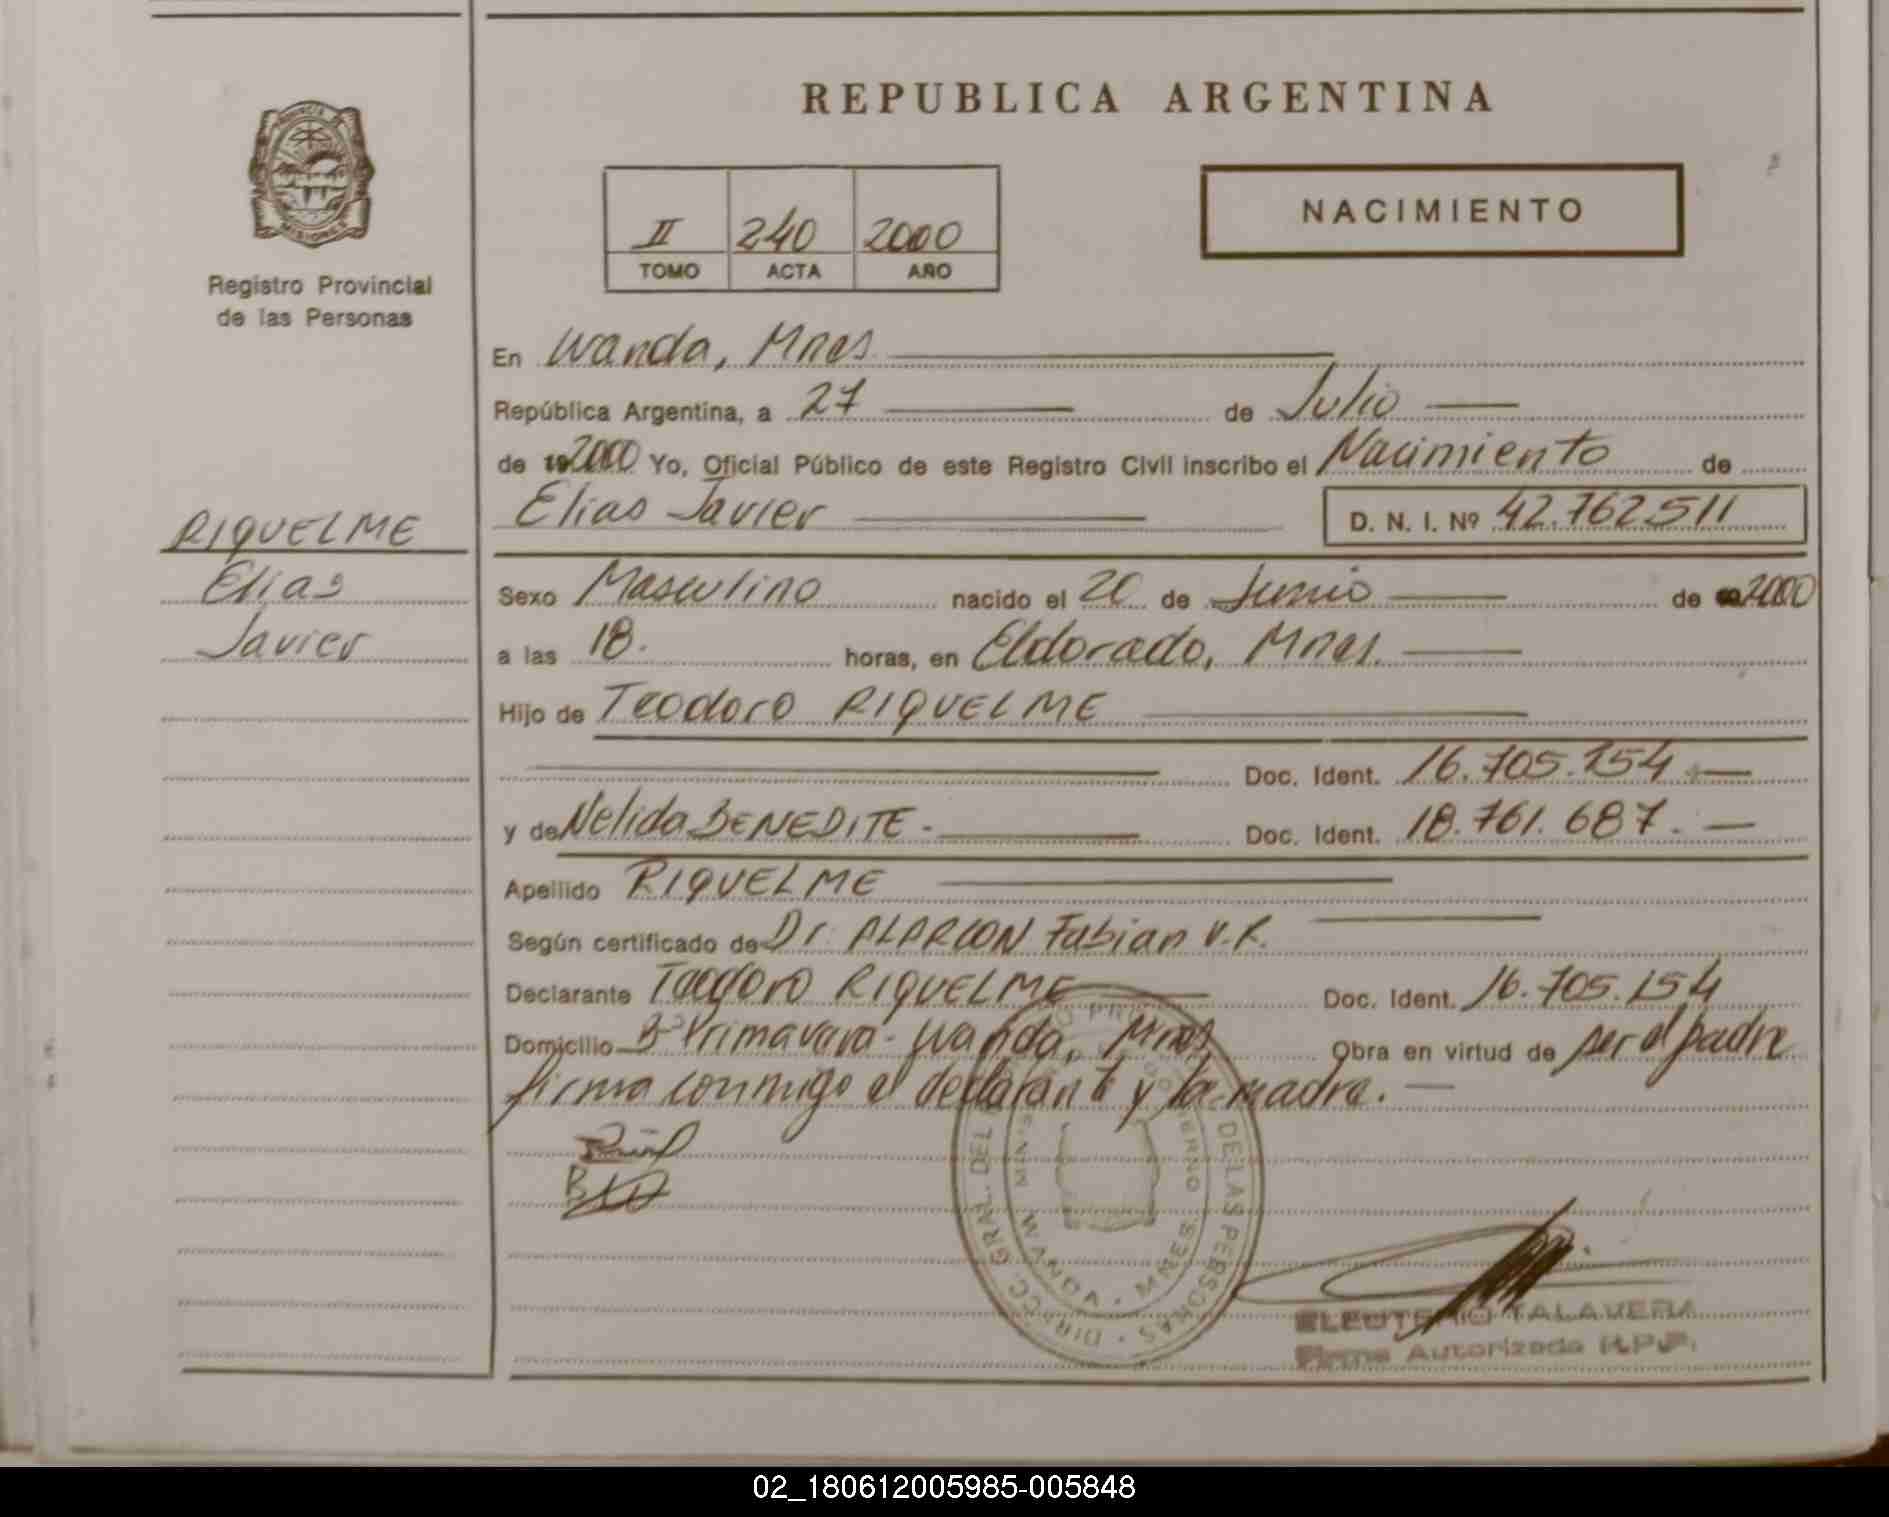 REPUBLICA ARGENTINA
PROVINCIA DE
MISIONES
Registro Provincial
de las Personas
II 240 2000
TOMO ACTA AÑO
NACIMIENTO
RIQUELME
Elias
Javier
En Wanda, Mnes.
República Argentina, a 27 de Julio
de 2000 Yo, Oficial Público de este Registro Civil inscribo el Nacimiento de
Elias Javier D. N. I. Nº 42.762.511
Sexo Masculino nacido el 20 de Junio de 2000
a las 18. horas, en Eldorado, Mnes.
Hijo de Teodoro RIQUELME
Doc. Ident. 16.705.154
y de Nelida BENEDITE - Doc. Ident. 18.761.687.
Apellido RIQUELME
Según certificado de Dr. ALARCON Fabian V.R.
Declarante Teodoro RIQUELME Doc. Ident. 16.705.154
Domicilio Bº Primavera - Wanda, Mnes. Obra en virtud de ser el padre
firma conmigo el declarante y la madre.
DIRECC. GRAL. DEL DE LAS PERSONAS
WANDA - MNES.
ELEUTERIO TALAVERA
Firma Autorizada R.P.P.
02_180612005985-005848